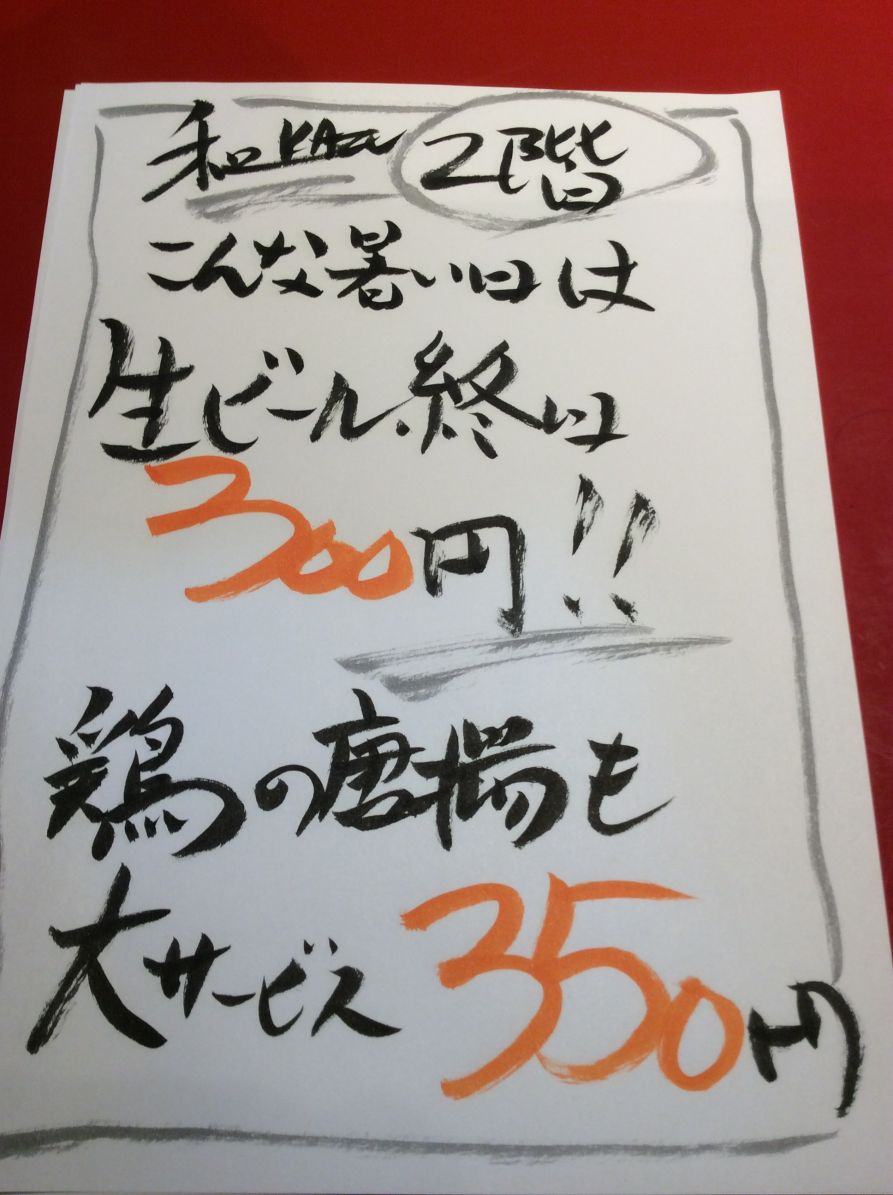 和KAZE 2階
こんな暑い日は
生ビール終日
300円!!
鶏の唐揚も
大サービス 350円